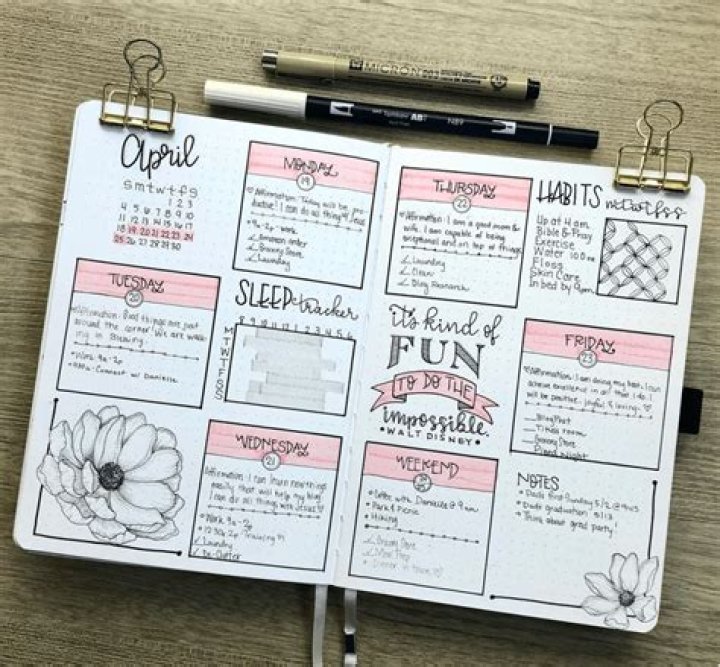 MICRON 003
Tombow AB
N89
April
s m t w t f s
1 2 3
4 5 6 7 8 9 10
11 12 13 14 15 16 17
18 19 20 21 22 23 24
25 26 27 28 29 30
MONDAY
19
Affirmation: Today will be pro-
ductive! I can do all things
9a-2p: work
Amazon order
Grocery Store
Laundry
TUESDAY
20
Affirmation: Good things are just
around the corner! We are walk-
ing in Blessing
Work 9a-2p
Connect w/ Danielle
SLEEP tracker
8 9 10 11 12 1 2 3 4 5 6
M
T
W
T
F
S
S
WEDNESDAY
21
Affirmation: I can learn new things
easily that will help my
I can do all things with Jesus
Work 9a-2p
12:30p Training
Laundry
De-Clutter
THURSDAY
22
Affirmation: I am a good mom &
wife. I am capable of being
exceptional and on top of things
Laundry
Clean
Blog Research
HABITS
m t w t f s s
Up at 4am
Bible & Pray
Exercise
Water 100oz
Floss
Skin Care
In bed by 9pm
it's kind of
FUN
TO DO THE
impossible
WALT DISNEY
FRIDAY
23
Affirmation: I am doing my best. I can
achieve excellence in all that I do. I
will be positive, joyful & loving
Blog Post
room
Grocery Store
Night
WEEKEND
Coffee with Danielle @ 9am
Park & Picnic
Hiking
Grocery Store
Meal Prep
Dinner in town
NOTES
First Sunday 5/2 @ 9:45
graduation 5/13
Think about grad party!